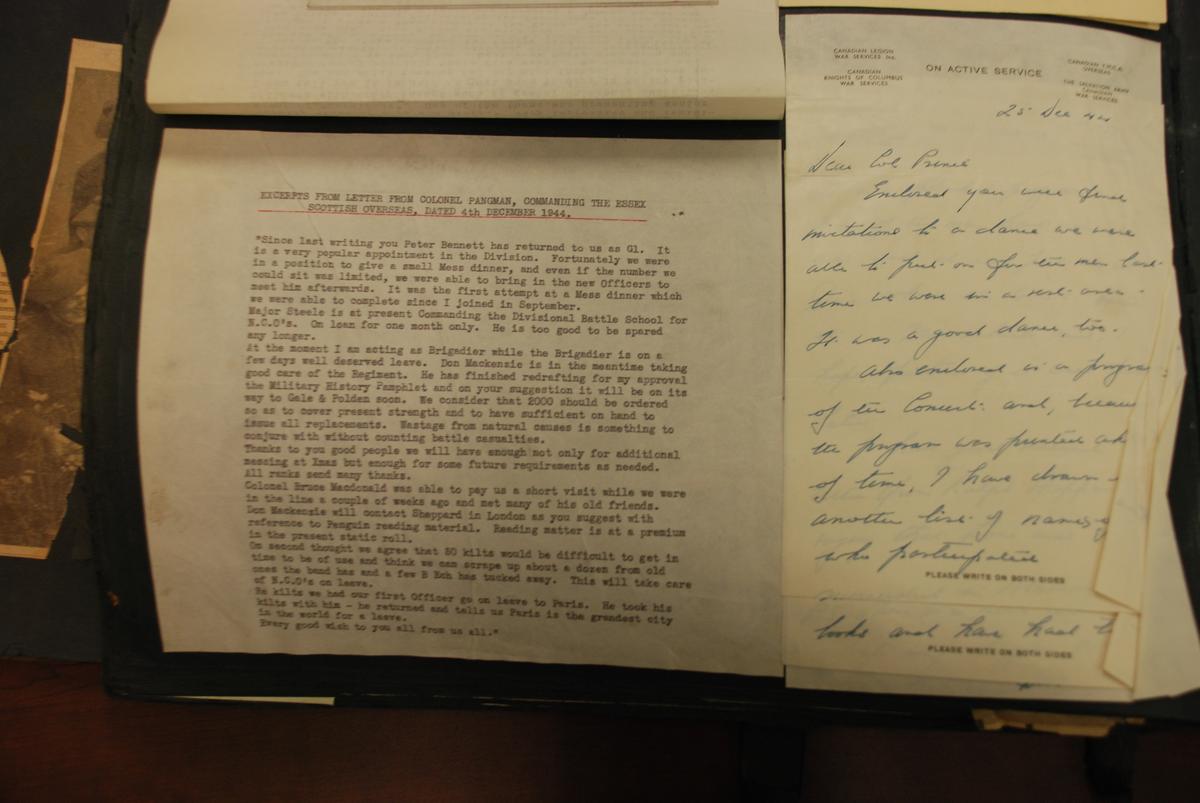 EXCERPTS FROM LETTER FROM COLONEL PANGMAN, COMMANDING THE ESSEX
SCOTTISH OVERSEAS, DATED 4th DECEMBER 1944.
"Since last writing you Peter Bennett has returned to us as G1. It
is a very popular appointment in the Division. Fortunately we were
in a position to give a small Mess dinner, and even if the number we
could sit was limited, we were able to bring in the new Officers to
meet him afterwards. It was the first attempt at a Mess dinner which
we were able to complete since I joined in September.
Major Steele is at present Commanding the Divisional Battle School for
N.C.O's. On loan for one month only. He is too good to be spared
any longer.
At the moment I am acting as Brigadier while the Brigadier is on a
few days well deserved leave. Don Mackenzie is in the meantime taking
good care of the Regiment. He has finished redrafting for my approval
the Military History Pamphlet and on your suggestion it will be on its
way to Gale & Polden soon. We consider that 2000 should be ordered
so as to cover present strength and to have sufficient on hand to
issue all replacements. Wastage from natural causes is something to
conjure with without counting battle casualties.
Thanks to you good people we will have enough not only for additional
messing at Xmas but enough for some future requirements as needed.
All ranks send many thanks.
Colonel Bruce Macdonald was able to pay us a short visit while we were
in the line a couple of weeks ago and met many of his old friends.
Don Mackenzie will contact Sheppard in London as you suggest with
reference to Penguin reading material. Reading matter is at a premium
in the present static roll.
On second thought we agree that 50 kilts would be difficult to get in
time to be of use and think we can scrape up about a dozen from old
ones the band has and a few B Ech has tucked away. This will take care
of N.C.O's on leave.
Re kilts we had our first Officer go on leave to Paris. He took his
kilts with him - he returned and tells us Paris is the grandest city
in the world for a leave.
Every good wish to you all from us all."
CANADIAN LEGION
WAR SERVICES INC.
CANADIAN
KNIGHTS OF COLUMBUS
WAR SERVICES
ON ACTIVE SERVICE
CANADIAN Y.M.C.A.
OVERSEAS
THE SALVATION ARMY
CANADIAN
WAR SERVICES
25 Dec 44
Dear Col Prince
Enclosed you will find
invitations to a dance we were
able to put on for the men last
time we were in a rest area.
It was a good dance, too.
Also enclosed is a program
of the Concert and, because
the program was printed
of time, I have drawn
another list of names
who participated
PLEASE WRITE ON BOTH SIDES
books and have had
PLEASE WRITE ON BOTH SIDES